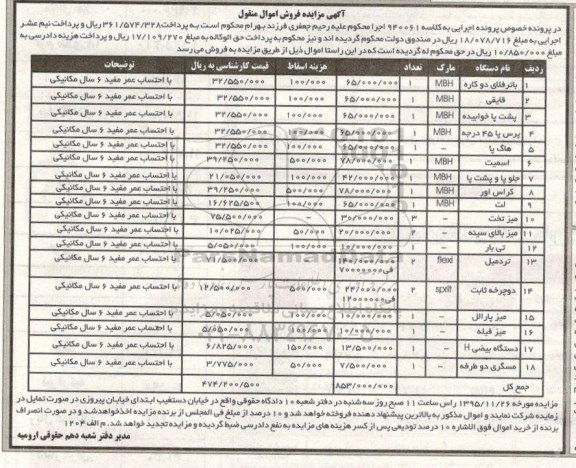 آگهی مزایده فروش اموال منقول
در پرونده خصوص پرونده اجرایی به کلاسه ۹۴۰۰۶۱ اجرا محکوم علیه رحیم جعفری فرزند بهرام محکوم است به پرداخت ۳۶۱/۵۷۴/۳۲۸ ریال و پرداخت نیم عشر
اجرایی به مبلغ ۱۸/۰۷۸/۷۱۶ ریال در صندوق دولت محکوم گردیده اند و نیز محکوم به پرداخت حق الوکاله به مبلغ ۱۷/۱۰۹/۲۷۰ ریال و پرداخت هزینه دادرسی به
مبلغ ۱۰/۸۵۰/۰۰۰ ریال در حق محکوم له گردیده است که در این راستا اموال ذیل از طریق مزایده به فروش می رسد
ردیف نام دستگاه مارک تعداد هزینه اسقاط قیمت کارشناسی به ریال توضیحات
۱ باترفلای دو کاره MBH ۱ ۶۵/۰۰۰/۰۰۰ ۱۰۰/۰۰۰ ۳۲/۵۵۰/۰۰۰ با احتساب عمر مفید ۶ سال مکانیکی
۲ قایقی MBH ۱ ۶۵/۰۰۰/۰۰۰ ۱۰۰/۰۰۰ ۳۲/۵۵۰/۰۰۰ با احتساب عمر مفید ۶ سال مکانیکی
۳ پشت پا خوابیده MBH ۱ ۶۵/۰۰۰/۰۰۰ ۱۰۰/۰۰۰ ۳۲/۵۵۰/۰۰۰ با احتساب عمر مفید ۶ سال مکانیکی
۴ پرس پا ۴۵ درجه MBH ۱ ۶۵/۰۰۰/۰۰۰ ۱۰۰/۰۰۰ ۳۲/۵۵۰/۰۰۰ با احتساب عمر مفید ۶ سال مکانیکی
۵ هاگ پا – ۱ ۶۵/۰۰۰/۰۰۰ ۱۰۰/۰۰۰ ۳۲/۵۵۰/۰۰۰ با احتساب عمر مفید ۶ سال مکانیکی
۶ اسمیت MBH ۱ ۷۸/۰۰۰/۰۰۰ ۵۰۰/۰۰۰ ۳۹/۲۵۰/۰۰۰ با احتساب عمر مفید ۶ سال مکانیکی
۷ جلو پا و پشت پا MBH ۱ ۴۲/۰۰۰/۰۰۰ ۱۰۰/۰۰۰ ۲۱/۰۵۰/۰۰۰ با احتساب عمر مفید ۶ سال مکانیکی
۸ کراس اور MBH ۱ ۷۸/۰۰۰/۰۰۰ ۵۰۰/۰۰۰ ۳۹/۲۵۰/۰۰۰ با احتساب عمر مفید ۶ سال مکانیکی
۹ لت MBH ۱ ۶۵/۰۰۰/۰۰۰ ۱۰۰/۰۰۰ ۱۶/۶۲۵/۵۰۰ با احتساب عمر مفید ۶ سال مکانیکی
۱۰ میز تخت – ۳ ۳۰/۰۰۰/۰۰۰ – ۷۵/۵۰۰/۰۰۰ با احتساب عمر مفید ۶ سال مکانیکی
۱۱ میز بالای سینه – ۲ ۲۰/۰۰۰/۰۰۰ ۵۰/۰۰۰ ۱۰/۰۲۵/۰۰۰ با احتساب عمر مفید ۶ سال مکانیکی
۱۲ تی بار – ۱ ۱۰/۰۰۰/۰۰۰ ۱۰۰/۰۰۰ ۵/۰۵۰/۰۰۰ با احتساب عمر مفید ۶ سال مکانیکی
۱۳ تردمیل flexi ۲ ۱۴۰/۰۰۰/۰۰۰ فی ۷۰۰۰۰۰۰۰ با احتساب عمر مفید ۶ سال مکانیکی
۱۴ دوچرخه ثابت sprit ۲ ۲۴/۰۰۰/۰۰۰ فی ۱۲۰۰۰۰۰۰ ۵۰۰/۰۰۰ ۱۲/۵۰۰/۰۰۰ با احتساب عمر مفید ۶ سال مکانیکی
۱۵ میز پارالل – ۱ ۱۰/۰۰۰/۰۰۰ ۱۰۰/۰۰۰ ۵/۰۵۰/۰۰۰ با احتساب عمر مفید ۶ سال مکانیکی
۱۶ میز فیله – ۱ ۱۰/۰۰۰/۰۰۰ ۱۰۰/۰۰۰ ۵/۰۵۰/۰۰۰ با احتساب عمر مفید ۶ سال مکانیکی
۱۷ دستگاه بیضی H – ۱ ۱۳/۵۰۰/۰۰۰ ۱۵۰/۰۰۰ ۶/۸۲۵/۰۰۰ با احتساب عمر مفید ۶ سال مکانیکی
۱۸ مسگری دو طرفه – ۱ ۷/۵۰۰/۰۰۰ ۵۰/۰۰۰ ۳/۷۷۵/۰۰۰ با احتساب عمر مفید ۶ سال مکانیکی
جمع کل ۸۵۳/۰۰۰/۰۰۰ ۴۷۴/۲۰۰/۵۰۰
مزایده مورخه ۱۳۹۵/۱۱/۲۶ راس ساعت ۱۱ صبح روز سه شنبه در دفتر شعبه ۱۰ دادگاه حقوقی واقع در خیابان دستغیب ابتدای خیابان پیروزی در صورت تمایل در
مزایده شرکت نمایند و اموال مذکور به بالاترین پیشنهاد دهنده فروخته خواهد شد و ۱۰ درصد از مبلغ فی المجلس از برنده مزایده اخذ خواهد شد و در صورت انصراف
برنده از خرید اموال فوق الاشاره ۱۰ درصد تودیعی پس از کسر هزینه های مزایده به نفع دادرسی ضبط گردیده و مزایده تجدید خواهد شد. م الف ۱۲۰۴
مدیر دفتر شعبه دهم حقوقی ارومیه